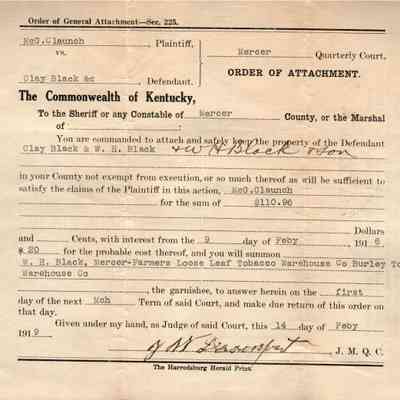 Order of General Attachment—Sec. 225.
McG.Claunch, Plaintiff,
vs.
Clay Black &c, Defendant.
Mercer Quarterly Court.
ORDER OF ATTACHMENT.
The Commonwealth of Kentucky,
To the Sheriff or any Constable of Mercer County, or the Marshal
of
You are commanded to attach and safely keep the property of the Defendant
Clay Black & W. H. Black & W H Black & Son
in your County not exempt from execution, or so much thereof as will be sufficient to
satisfy the claims of the Plaintiff in this action, McG.Claunch
for the sum of $110.96
Dollars
and Cents, with interest from the 9 day of Feby, 1916
$ 20 for the probable cost thereof, and you will summon
W. H. Black, Mercer-Farmers Loose Leaf Tobacco Warehouse Co Burley To
Warehouse Co
, the garnishee, to answer herein on the first
day of the next Mch Term of said Court, and make due return of this order on
that day.
Given under my hand, as Judge of said Court, this 14 day of Feby
1919
J. M. Q. C.
The Harrodsburg Herald Print